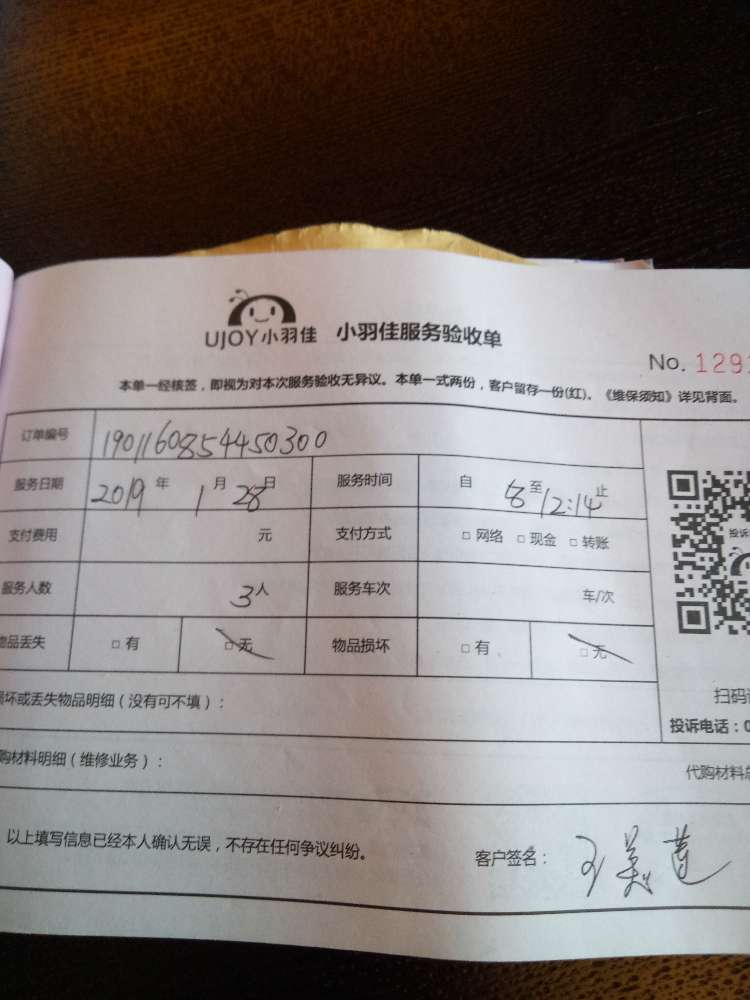 UJOY小羽佳 小羽佳服务验收单
No. 1291
本单一经核签，即视为对本次服务验收无异议。本单一式两份，客户留存一份(红)。《维保须知》详见背面。
订单编号 1901160854450300
服务日期 2019 年 1 月 28 日 服务时间 自 8 至 12:14 止
支付费用 元 支付方式 □ 网络 □ 现金 □ 转账
服务人数 3 人 服务车次 车/次
物品丢失 □ 有 □ 无 物品损坏 □ 有 □ 无
投诉
扫码
损坏或丢失物品明细（没有可不填）：
投诉电话：0
购材料明细（维修业务）：
代购材料
以上填写信息已经本人确认无误，不存在任何争议纠纷。
客户签名：王美莲